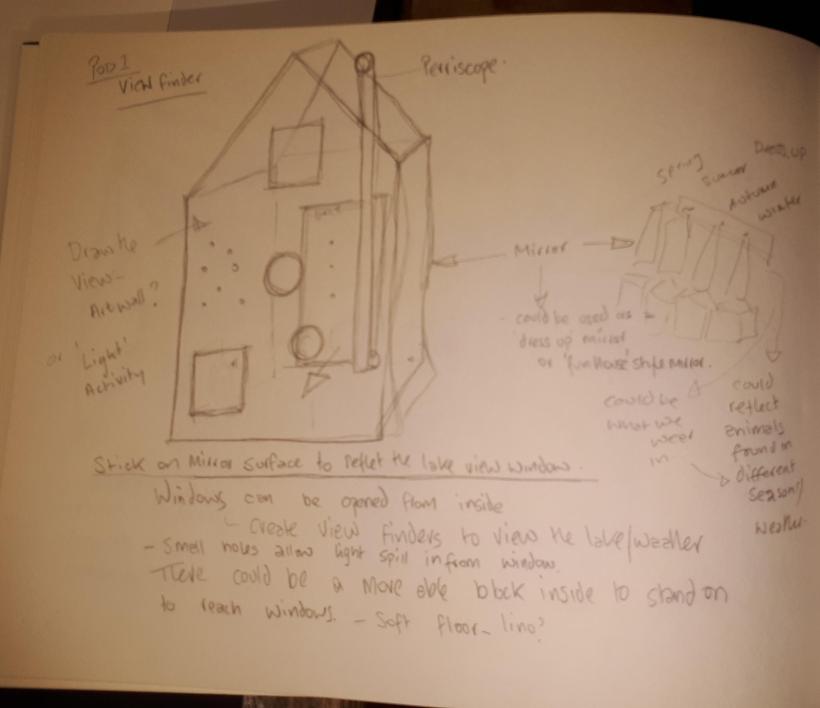 POD 1
View finder
Perriscope.
Draw the
View -
Art wall?
or 'Light'
Activity
Mirror
could be used as
'dress up' mirror
or 'funhouse' style mirror.
Spring
Summer
Autumn
Winter
Dress up
could be
what we
wear
in
could
reflect
animals
found in
different
seasons/
weather.
Stick on Mirror surface to reflet the lake view window.
Windows can be opened from inside
Create View finders to view the lake/weather
- Small holes allow light spill in from window.
There could be a move able block inside to stand on
to reach windows. - Soft floor - lino?